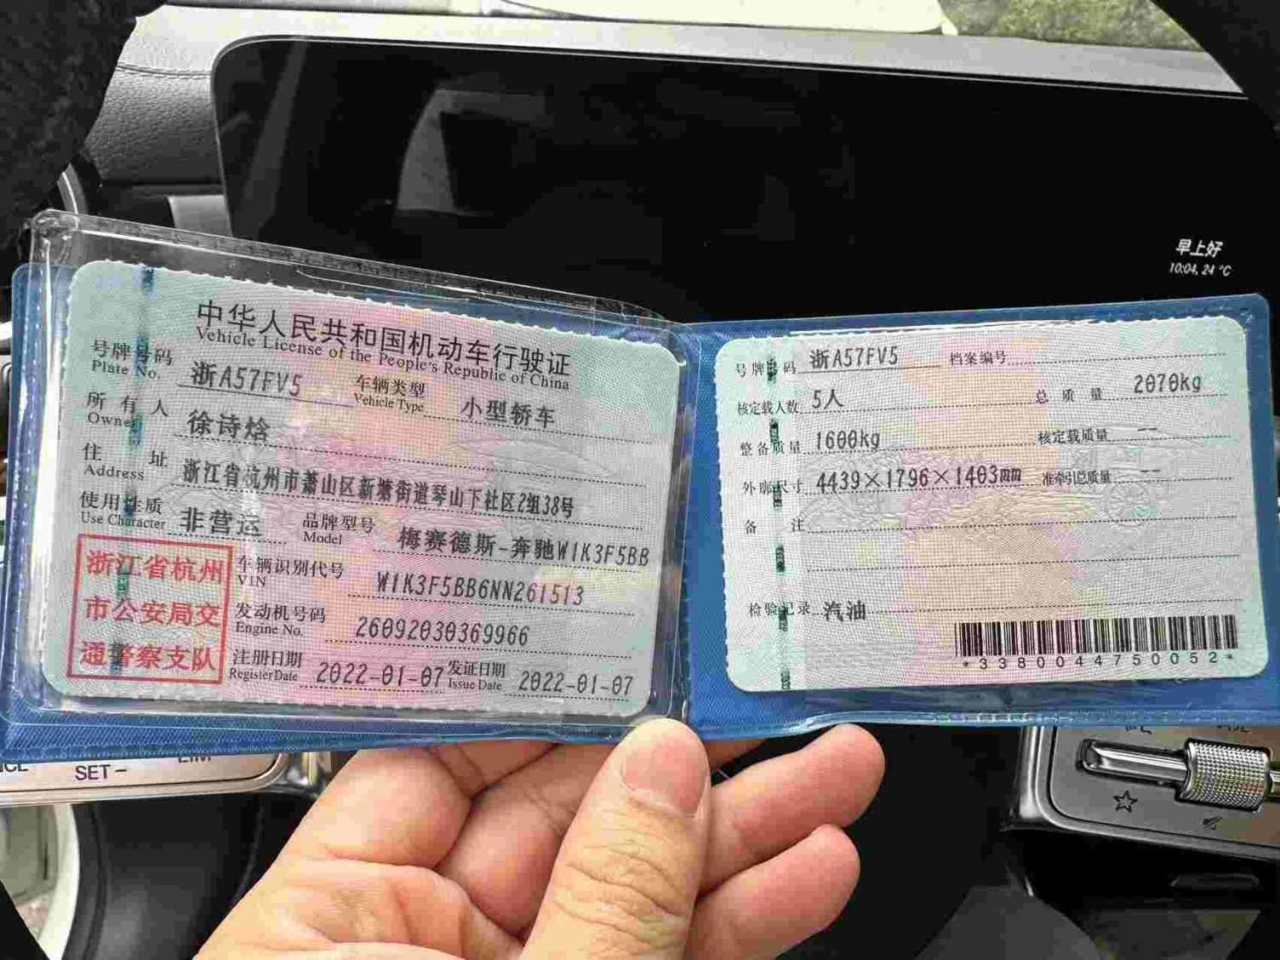 早上好
10:04, 24 °C
中华人民共和国机动车行驶证
Vehicle License of the People's Republic of China
号牌号码 浙A57FV5 车辆类型 小型轿车
Plate No. Vehicle Type
所有人 徐诗焓
Owner
住址 浙江省杭州市萧山区新塘街道琴山下社区2组38号
Address
使用性质 非营运 品牌型号 梅赛德斯-奔驰W1K3F5BB
Use Character Model
浙江省杭州
市公安局交
通警察支队
车辆识别代号 W1K3F5BB6NN261513
VIN
发动机号码 26092030369966
Engine No.
注册日期 2022-01-07 发证日期 2022-01-07
Register Date Issue Date
号牌号码 浙A57FV5 档案编号
核定载人数 5人 总质量 2070kg
整备质量 1600kg 核定载质量 --
外廓尺寸 4439×1796×1403mm 准牵引总质量 --
备注
检验记录 汽油
*3380044750052*
SET-